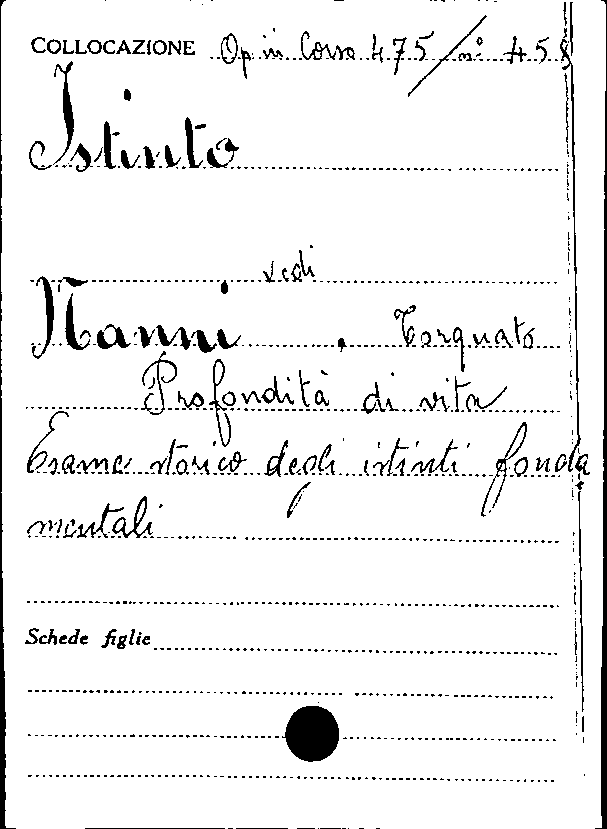 COLLOCAZIONE Op in Corso 475/n° 458
Istinto
vedi
Nanni, Torquato
Profondità di vita
Esame storico degli istinti fonda
mentali
Schede figlie